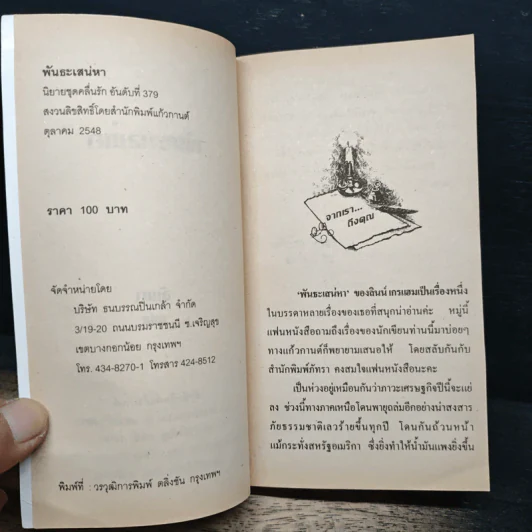 พันธะเสน่หา
นิยายชุดคลื่นรัก อันดับที่ 379
สงวนลิขสิทธิ์โดยสำนักพิมพ์แก้วกานต์
ตุลาคม 2548
ราคา 100 บาท
จัดจำหน่ายโดย
บริษัท ธนบรรณปิ่นเกล้า จำกัด
3/19-20 ถนนบรมราชชนนี ข.เจริญสุร
เขตบางกอกน้อย กรุงเทพฯ
โทร. 434-8270-1 โทรสาร 424-8512
พิมพ์ที่ : วรวุฒิการพิมพ์ ตลิ่งชัน กรุงเทพฯ
จากเรา...
ถึงคุณ
'พันธะเสน่หา' ของลินน์ เกรแฮมเป็นเรื่องหนึ่ง
ในบรรดาหลายเรื่องของเธอที่สนุกน่าอ่านค่ะ หมู่นี้
แฟนหนังสือถามถึงเรื่องของนักเขียนท่านนี้มาบ่อยๆ
ทางแก้วกานต์ก็พยายามเสนอให้ โดยสลับกันกับ
สำนักพิมพ์ภัทรา คงสมใจแฟนหนังสือนะคะ
เป็นห่วงอยู่เหมือนกันว่าภาวะเศรษฐกิจปีนี้จะแย่
ลง ช่วงนี้ทางภาคเหนือโดนพายุถล่มอีกอย่างน่าสงสาร
ภัยธรรมชาติเลวร้ายขึ้นทุกปี โดนกันถ้วนหน้า
แม้กระทั่งสหรัฐอเมริกา ซึ่งยิ่งทำให้น้ำมันแพงยิ่งขึ้น